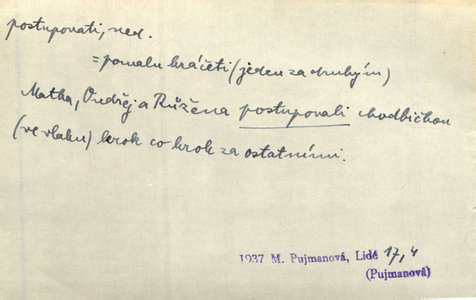 postupovati, ned.
= pomalu kráčeti (jeden za druhým)
Matka, Ondřej a Růžena postupovali chodbičkou
(ve vlaku) krok co krok za ostatními.
1937 M. Pujmanová, Lidé 17,4
(Pujmanová)